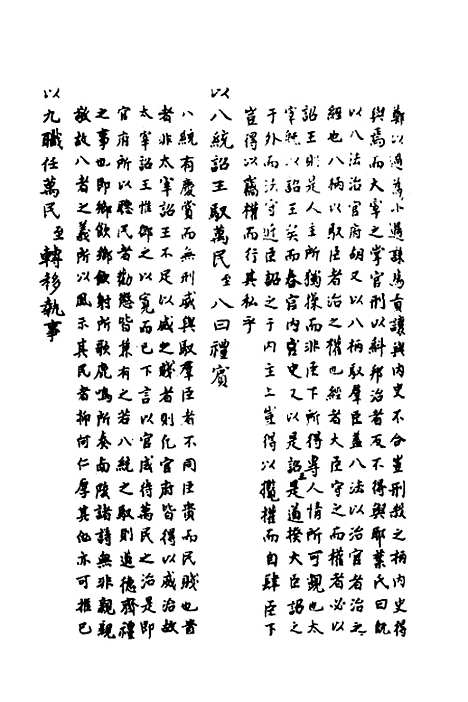 鄭以過為小過誅為責讓與內史不合豈刑殺之柄內史得
與焉而大宰之掌官刑以糾邦治者反不得與耶葉氏曰既
以八法治官府胡又以八柄馭羣臣蓋八法以治官者治之
經也八柄以馭臣者治之權也經者大臣守之而權者必以
詔王則是人主所獨操而非臣下所得專人情所可覬也太
宰既以詔王矣而春官內史又以是詔是道揆大臣詔之
于外而法守近臣詔之于內主上豈得以攬權而自肆臣下
豈得以竊權而行其私乎
以八統詔王馭萬民至八曰禮賓
八統有慶賞而無刑威與馭羣臣者不同臣貴而民賤也貴
者非太宰詔王不足以威之賤者則化官府皆得以威治故
太宰詔王惟鄉之以寬而已下言以官成待萬民之治是即
官府所以聽民者勸懲皆兼有之若八統之馭則道德齊禮
之事也即鄉飲鄉射所歌鹿鳴所奏南陔諸詩無非親親
敬故八者之義所以風示其民者抑何仁厚其他亦可推已
以九職任萬民至轉移執事